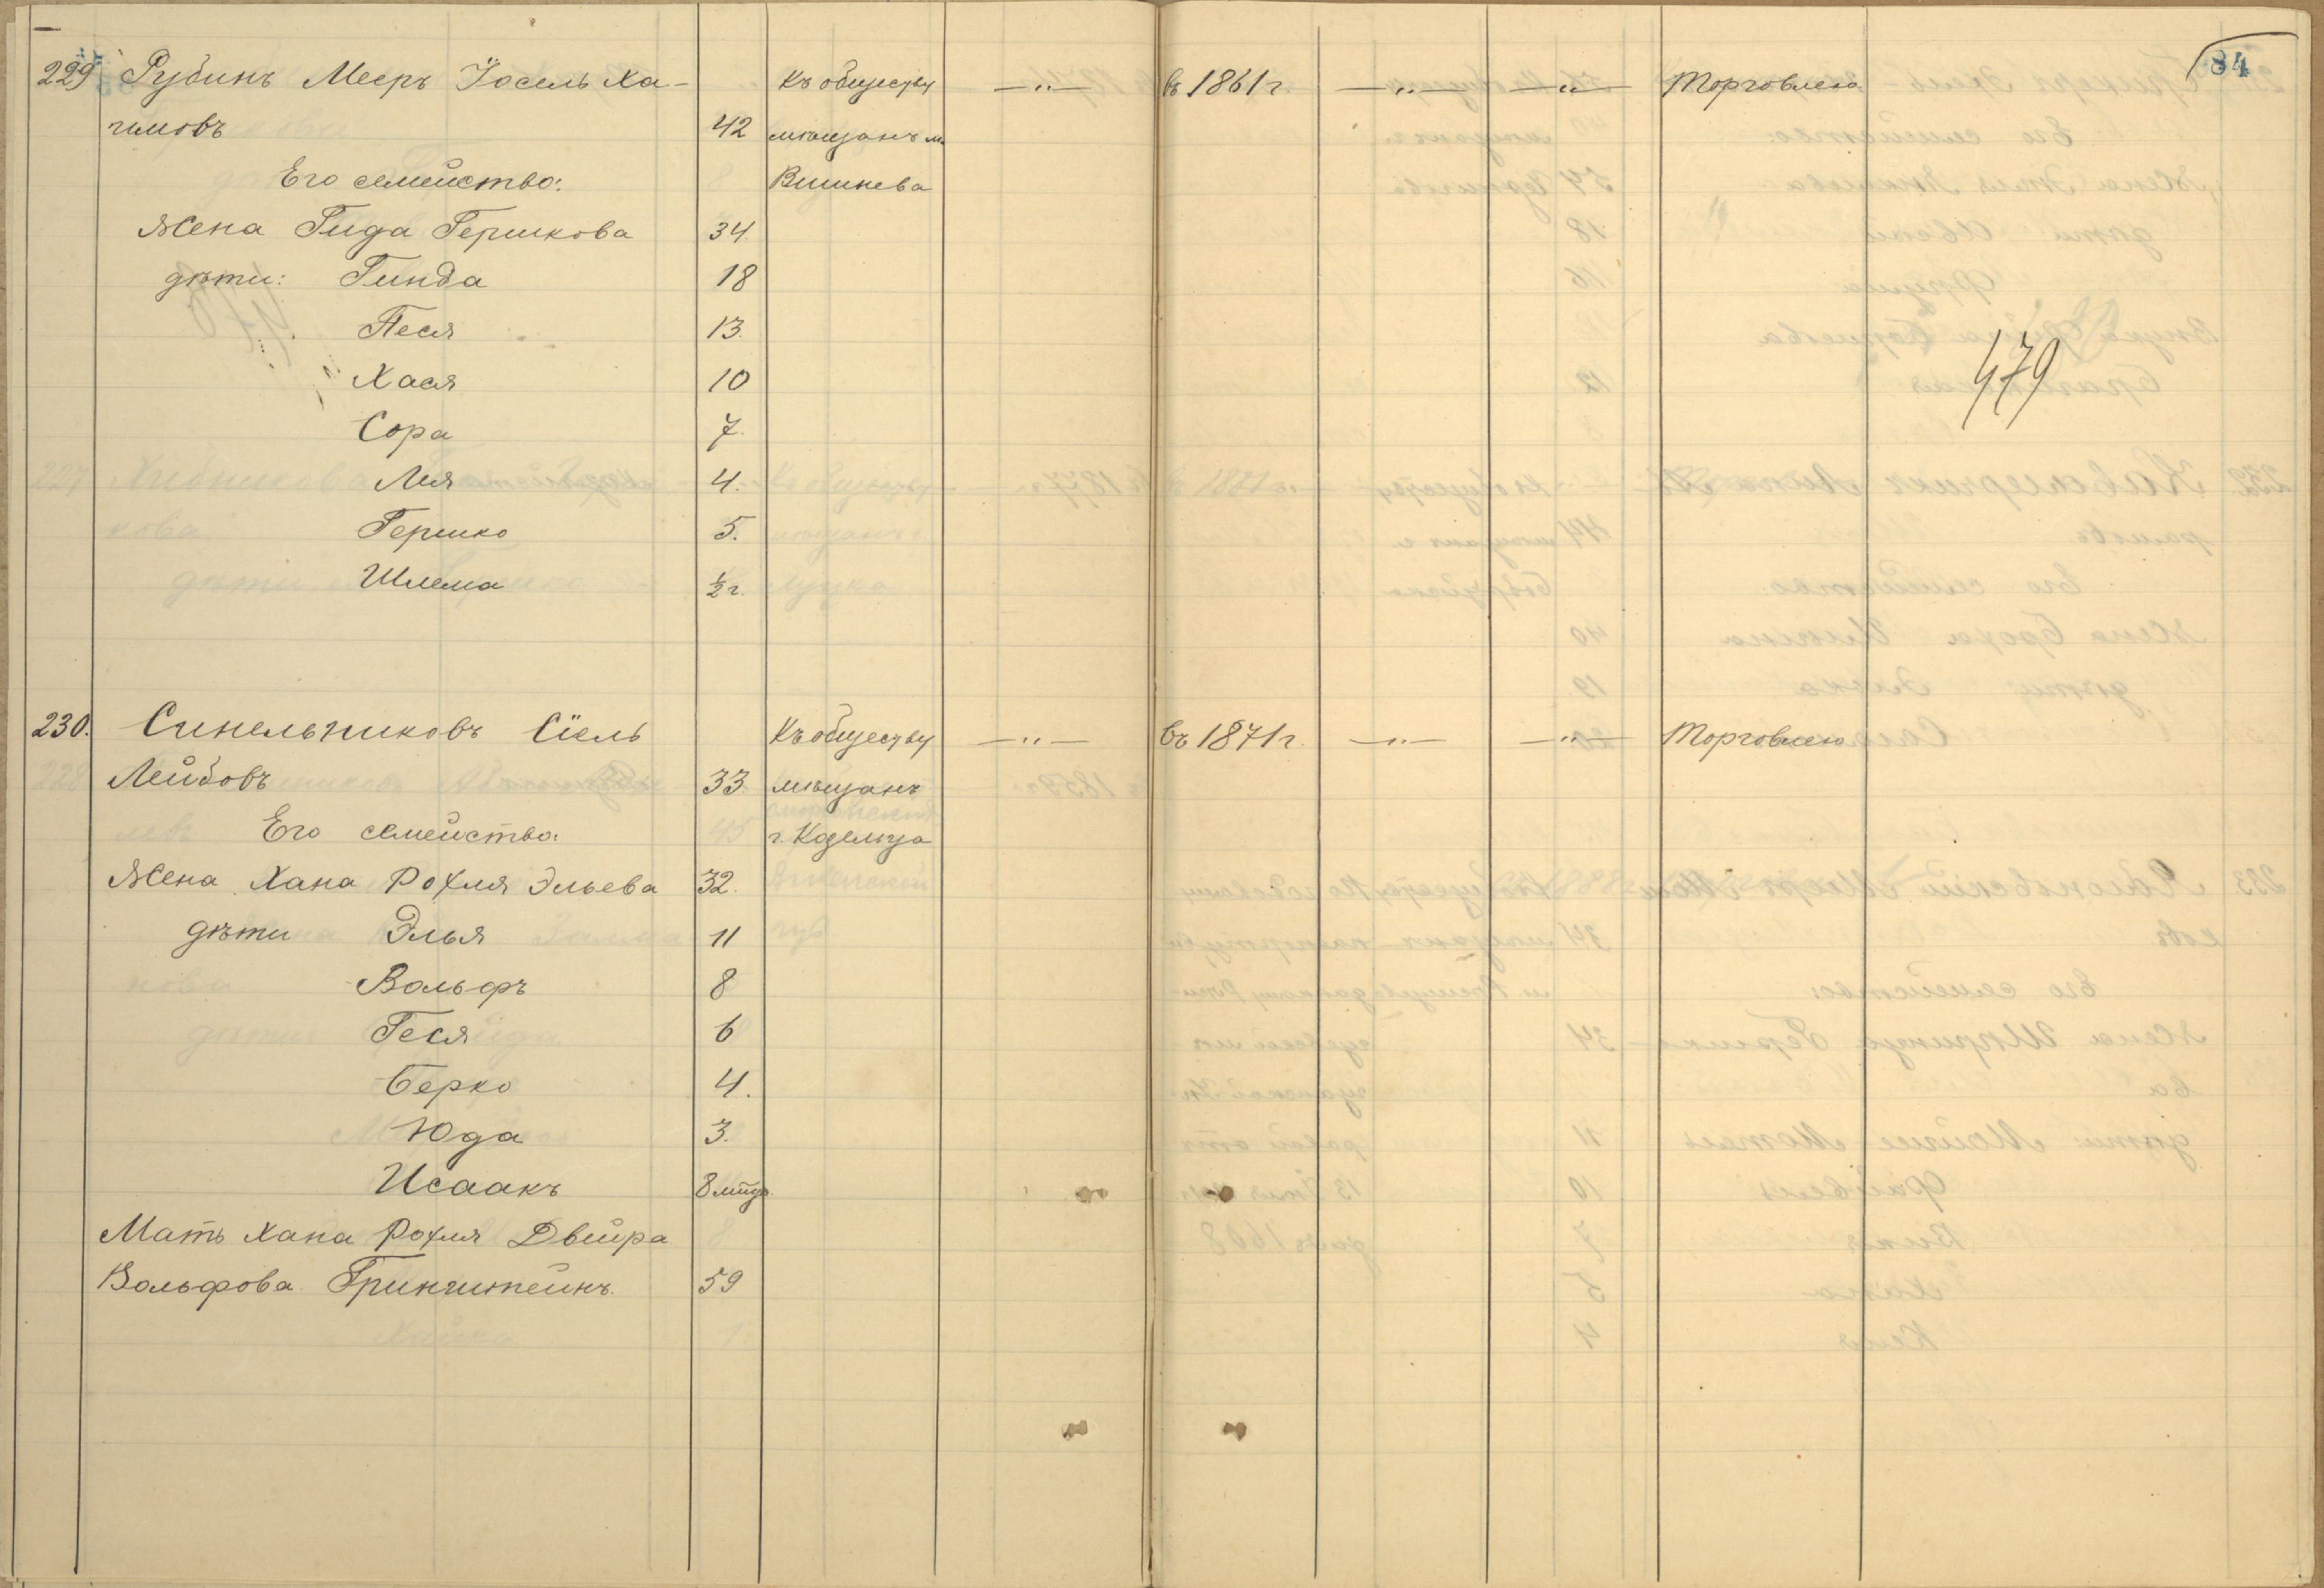 84
229 Рубинъ Мееръ Іосель Ха- Къ обществу —„— въ 1861 г. —„— —„— Торговлею
имовъ 42 мѣщанъ м.
Его семейство: Вишнева
Жена Гида Гершкова 34.
дѣти: Гинда 18
Песя 13.
479
Хася 10
Сора 7.
Лея 4.
Гершко 5.
Шлема ½ г.
230. Синельниковъ Сіель Къ обществу —„— въ 1871 г. —„— —„— Торговлею
Лейбовъ 33. мѣщанъ
Его семейство: г. Козельца
Жена Хана Рохля Эльева 32.
дѣти Элья 11
Вольфъ 8
Геся 6
Берко 4.
Юда 3.
Исаакъ 8 мѣц.
Мать Хана Рохля Двейра
Вольфова Гринштейнъ. 59